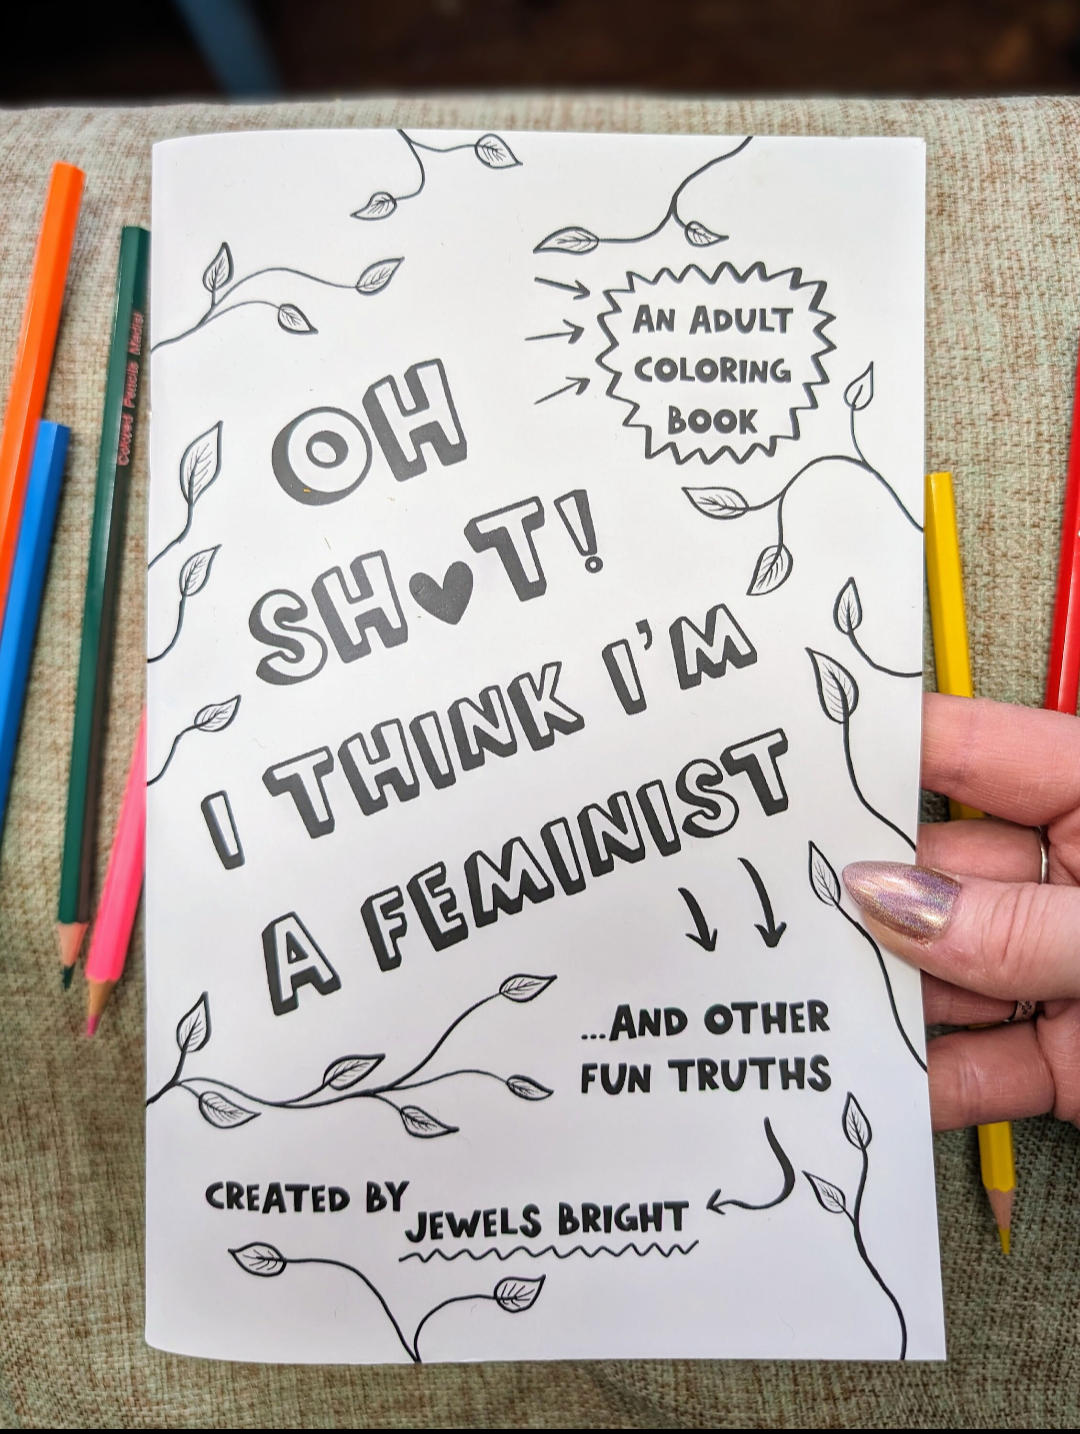 AN ADULT
COLORING
BOOK
OH
SH♥T!
I THINK I'M
A FEMINIST
...AND OTHER
FUN TRUTHS
CREATED BY
JEWELS BRIGHT
Colored Pencils Madisi